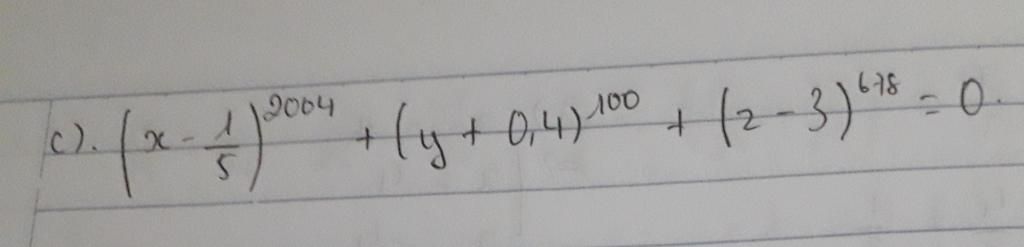 c). (x - 1/5)^2004 + (y + 0,4)^100 + (z - 3)^678 = 0.